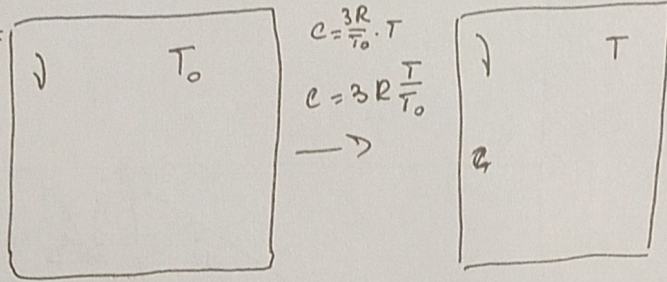 ν T₀
C = 3R/T₀ · T
C = 3R T/T₀
→
ν T